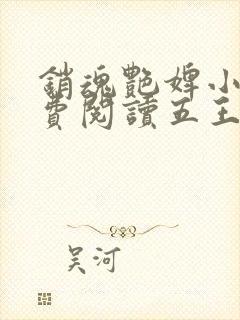 銷魂艷婢小
費閱讀五王
吴河